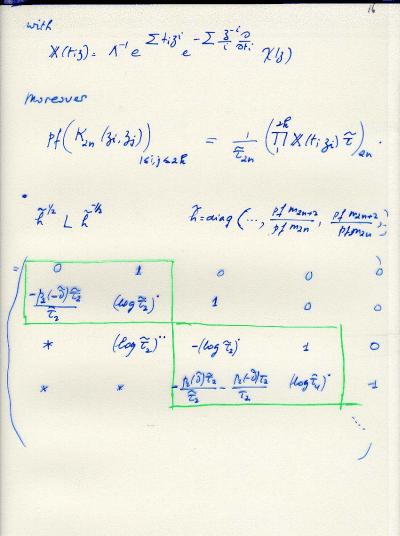 16
with
𝕏(t,z) = Λ⁻¹ e^{Σ tᵢzⁱ} e^{-Σ z⁻ⁱ/i ∂/∂tᵢ} χ(z)
Moreover
pf(K₂ₙ(zᵢ,zⱼ))_{1≤i,j≤2k} = 1/τ̃₂ₙ (∏₁^{2k} 𝕏(t,zᵢ) τ̃)₂ₙ.
h̃^{1/2} L h̃^{-1/2} h̃=diag(..., pf m₂ₙ₊₂/pf m₂ₙ, pf m₂ₙ₊₂/pf m₂ₙ, )
= 0 1 0 0 0
-p₂(-∂̃)τ̃₂/τ̃₂ (log τ̃₂)˙ 1 0 0
* (log τ̃₂)¨ -(log τ̃₂)˙ 1 0
* * -p₂(∂̃)τ̃₂/τ̃₂ - p₂(-∂̃)τ₂/τ₂ (log τ̃₄)˙ 1
...